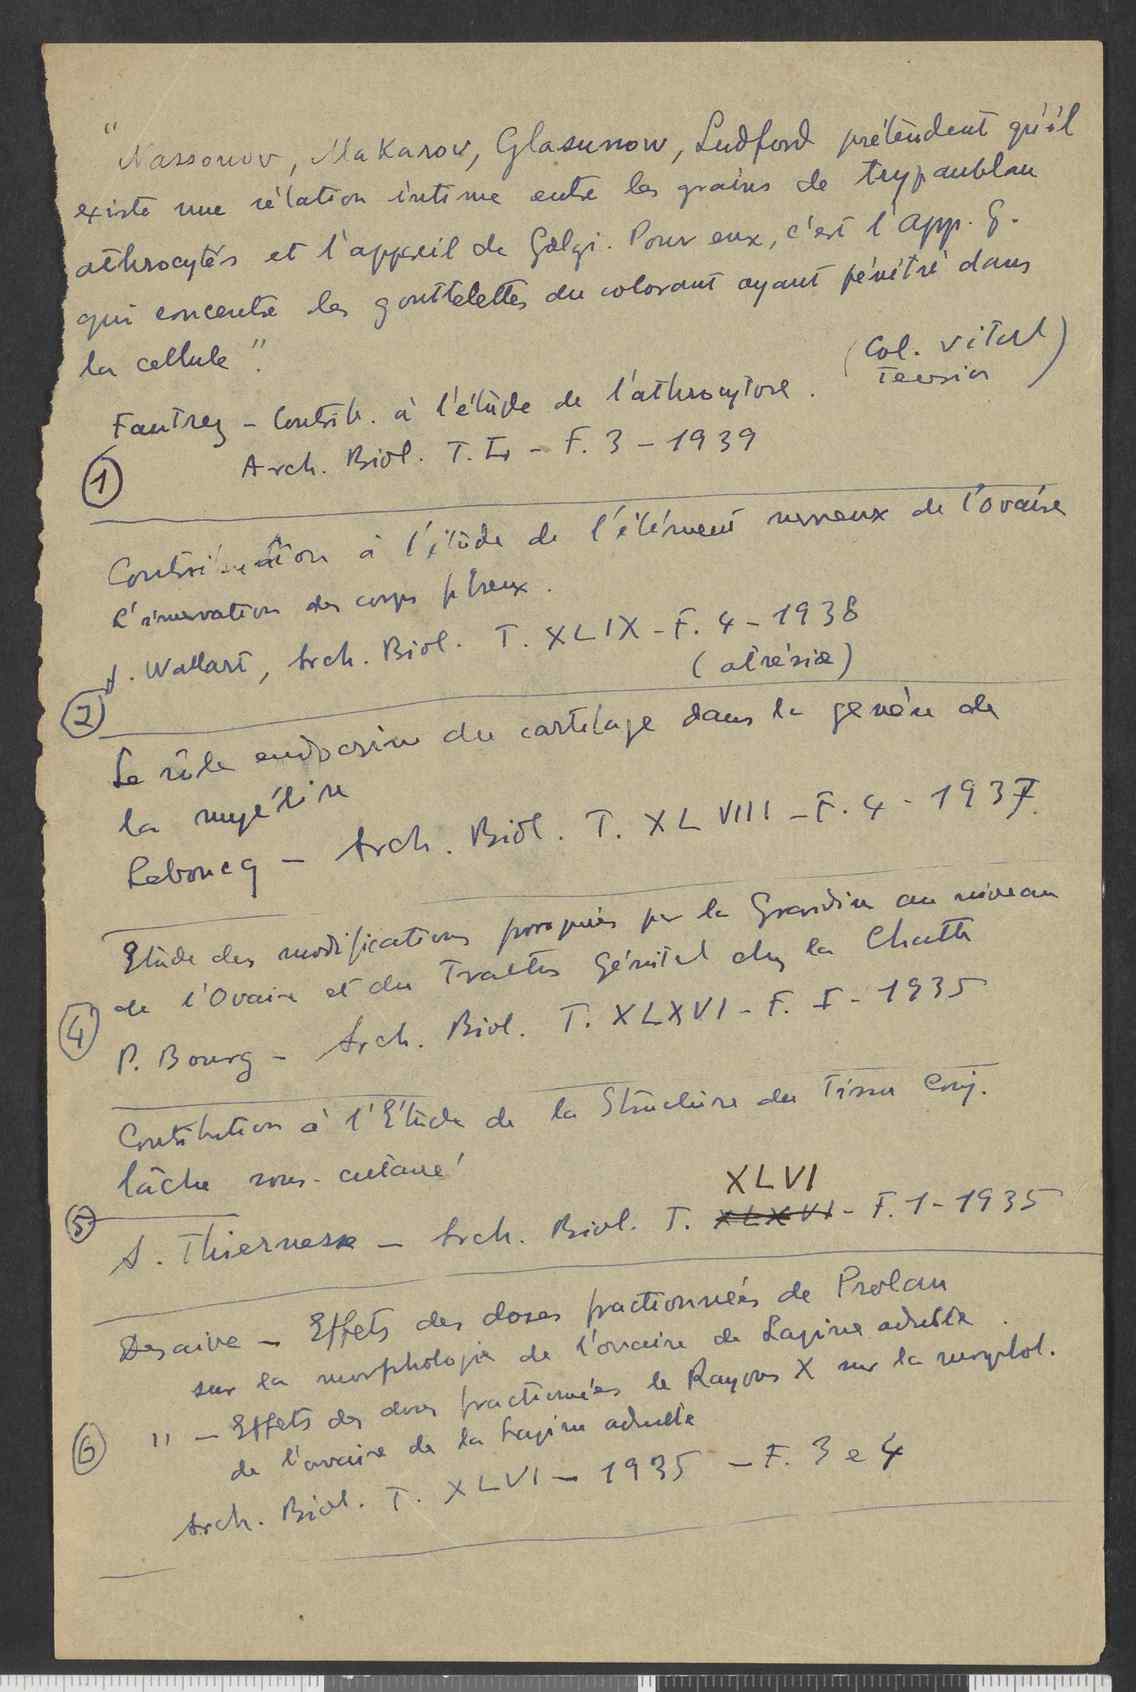 " Nassonov, Makarov, Glasunow, Ludford prétendent qu'il
existe une rélation intime entre les grains de trypanblau
athrocytés et l'appareil de Golgi. Pour eux, c'est l'app. G.
qui concentre les gouttelettes du colorant ayant pénétré dans
la cellule".
(Col. vital
Fautrez - Contrib. à l'étude de l'athrocytose.
① Arch. Biol. T. L - F. 3 - 1939
Contribution à l'étude de l'élément nerveux de l'ovaire
L'inervation des corps
J. Wallart, Arch. Biol. T. XLIX - F. 4 - 1938
② (atrésie)
Le rôle endocrine du cartilage dans la genèse de
la
Leboucq - Arch. Biol. T. XLVIII - F. 4 - 1937.
Etude des modifications par la Gravidité au niveau
de l'Ovaire et du Tractus Génital chez la Chatte
④ P. Bourg - Arch. Biol. T. XLXVI - F. I - 1935
Contribution à l'Etude de la Structure du Tissu Conj.
lâche sous-cutané
XLVI
⑤ J. Thiernesse - Arch. Biol. T. XLXVI - F. 1 - 1935
Desaive - Effets des doses fractionnées de Prolan
sur la morphologie de l'ovaire de Lapine adulte.
" - Effets des doses fractionnées de Rayons X sur la morphol.
⑥ de l'ovaire de la Lapine adulte
Arch. Biol. T. XLVI - 1935 - F. 3 e 4